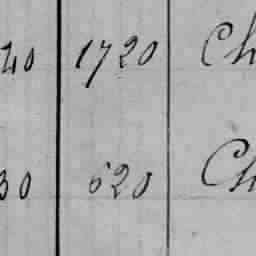 40 1720 Ch
30 620 Ch